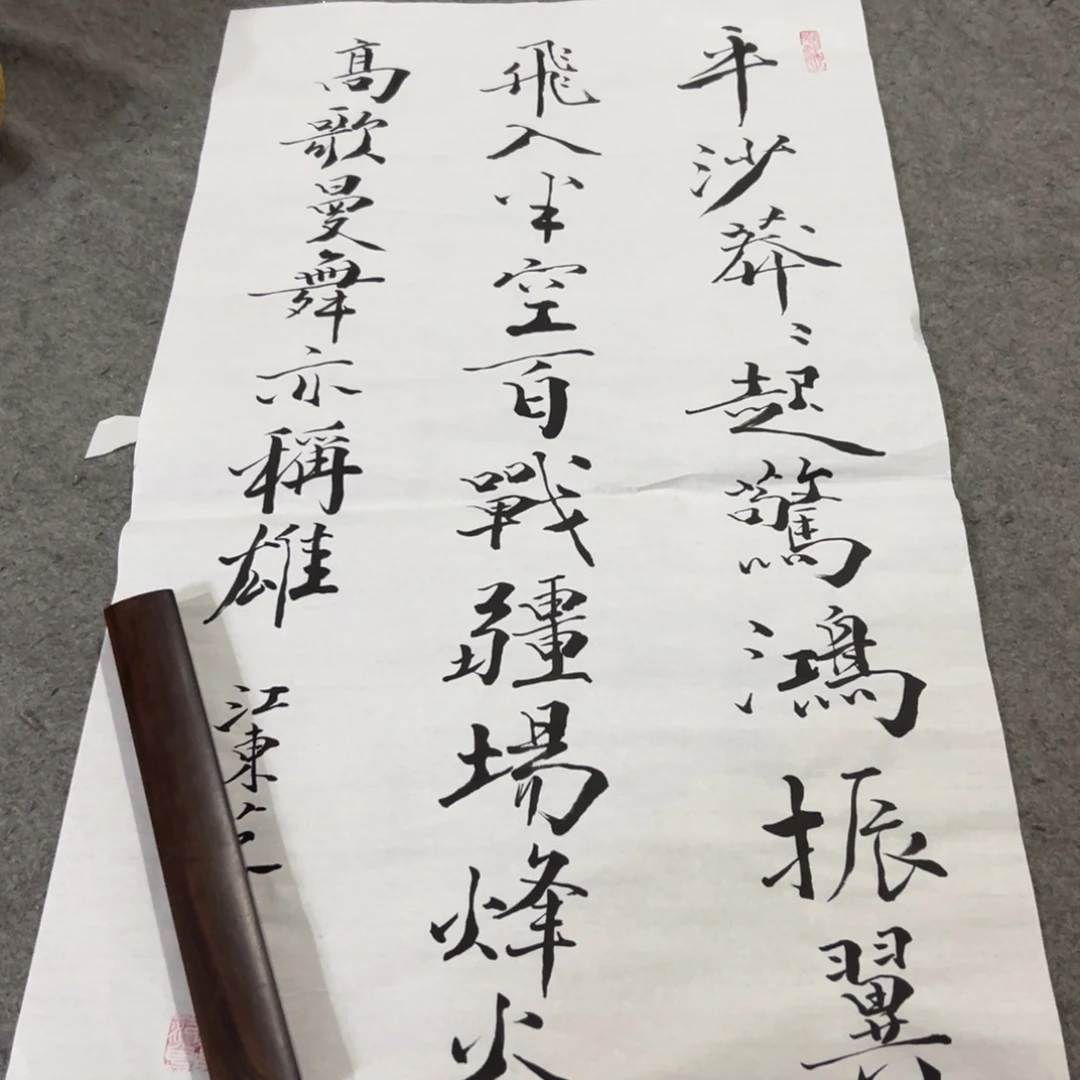 平沙莽〻起驚鴻振翼
飛入半空百戰疆場烽火
高歌曼舞亦稱雄
江東